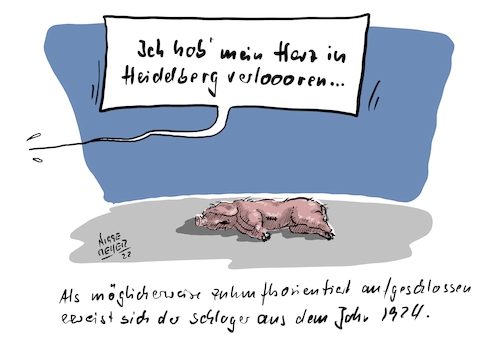 „Ich hob' mein Herz in
Heidelberg verloooren...
NIGGE
MEYER
22
Als möglicherweise zukunftsorientiert aufgeschlossen
erweist sich der Schlager aus dem Jahr 1924.